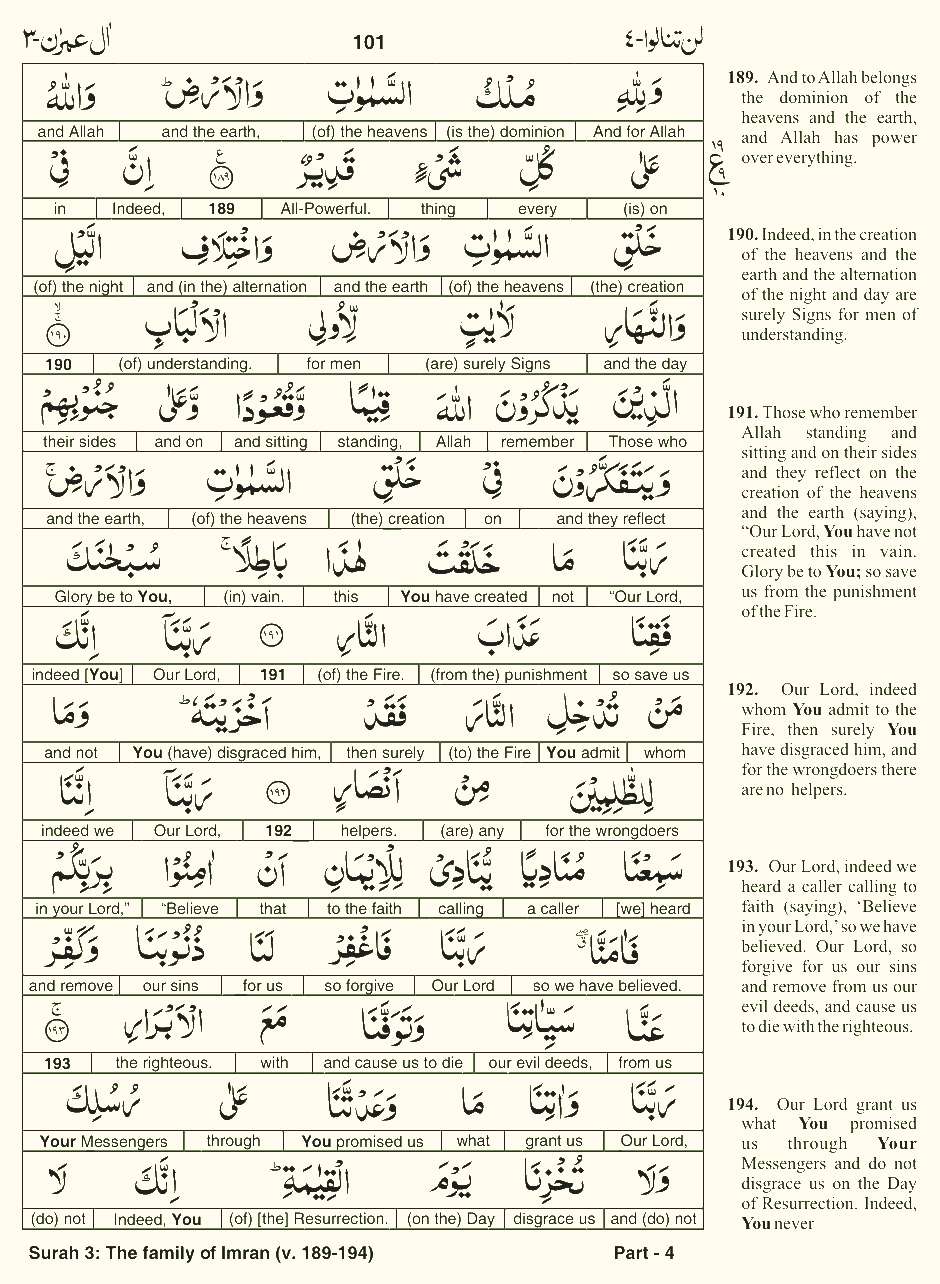 اٰل عمرٰن-٣ 101 لن تنالوا-٤
وَلِلّٰهِ مُلْكُ السَّمٰوٰتِ وَالْاَرْضِ ؕ وَاللّٰهُ
And for Allah (is the) dominion (of) the heavens and the earth, and Allah
عَلٰى كُلِّ شَىْءٍ قَدِيْرٌ ١٨٩ اِنَّ فِىْ
(is) on every thing All-Powerful. 189 Indeed, in
خَلْقِ السَّمٰوٰتِ وَالْاَرْضِ وَاخْتِلَافِ الَّيْلِ
(the) creation (of) the heavens and the earth and (in the) alternation (of) the night
وَالنَّهَارِ لَاٰيٰتٍ لِّاُولِى الْاَلْبَابِ ١٩٠
and the day (are) surely Signs for men (of) understanding. 190
الَّذِيْنَ يَذْكُرُوْنَ اللّٰهَ قِيٰمًا وَّقُعُوْدًا وَّعَلٰى جُنُوْبِهِمْ
Those who remember Allah standing, and sitting and on their sides
وَيَتَفَكَّرُوْنَ فِىْ خَلْقِ السَّمٰوٰتِ وَالْاَرْضِ ۚ
and they reflect on (the) creation (of) the heavens and the earth,
رَبَّنَا مَا خَلَقْتَ هٰذَا بَاطِلًا ۚ سُبْحٰنَكَ
“Our Lord, not You have created this (in) vain. Glory be to You,
فَقِنَا عَذَابَ النَّارِ ١٩١ رَبَّنَاۤ اِنَّكَ
so save us (from the) punishment (of) the Fire. 191 Our Lord, indeed [You]
مَنْ تُدْخِلِ النَّارَ فَقَدْ اَخْزَيْتَهٗ ؕ وَمَا
whom You admit (to) the Fire then surely You (have) disgraced him, and not
لِلظّٰلِمِيْنَ مِنْ اَنْصَارٍ ١٩٢ رَبَّنَاۤ اِنَّنَا
for the wrongdoers (are) any helpers. 192 Our Lord, indeed we
سَمِعْنَا مُنَادِيًا يُّنَادِىْ لِلْاِيْمَانِ اَنْ اٰمِنُوْا بِرَبِّكُمْ
[we] heard a caller calling to the faith that “Believe in your Lord,”
فَاٰمَنَّا ۖۗ رَبَّنَا فَاغْفِرْ لَنَا ذُنُوْبَنَا وَكَفِّرْ
so we have believed. Our Lord so forgive for us our sins and remove
عَنَّا سَيِّاٰتِنَا وَتَوَفَّنَا مَعَ الْاَبْرَارِ ١٩٣
from us our evil deeds, and cause us to die with the righteous. 193
رَبَّنَا وَاٰتِنَا مَا وَعَدْتَّنَا عَلٰى رُسُلِكَ
Our Lord, grant us what You promised us through Your Messengers
وَلَا تُخْزِنَا يَوْمَ الْقِيٰمَةِ ؕ اِنَّكَ لَا
and (do) not disgrace us (on the) Day (of) [the] Resurrection. Indeed, You (do) not
١٩
ع ٩
١٠
189. And to Allah belongs
the dominion of the
heavens and the earth,
and Allah has power
over everything.
190. Indeed, in the creation
of the heavens and the
earth and the alternation
of the night and day are
surely Signs for men of
understanding.
191. Those who remember
Allah standing and
sitting and on their sides
and they reflect on the
creation of the heavens
and the earth (saying),
“Our Lord, You have not
created this in vain.
Glory be to You; so save
us from the punishment
of the Fire.
192. Our Lord, indeed
whom You admit to the
Fire, then surely You
have disgraced him, and
for the wrongdoers there
are no helpers.
193. Our Lord, indeed we
heard a caller calling to
faith (saying), ‘Believe
in your Lord,’ so we have
believed. Our Lord, so
forgive for us our sins
and remove from us our
evil deeds, and cause us
to die with the righteous.
194. Our Lord grant us
what You promised
us through Your
Messengers and do not
disgrace us on the Day
of Resurrection. Indeed,
You never
Surah 3: The family of Imran (v. 189-194) Part - 4